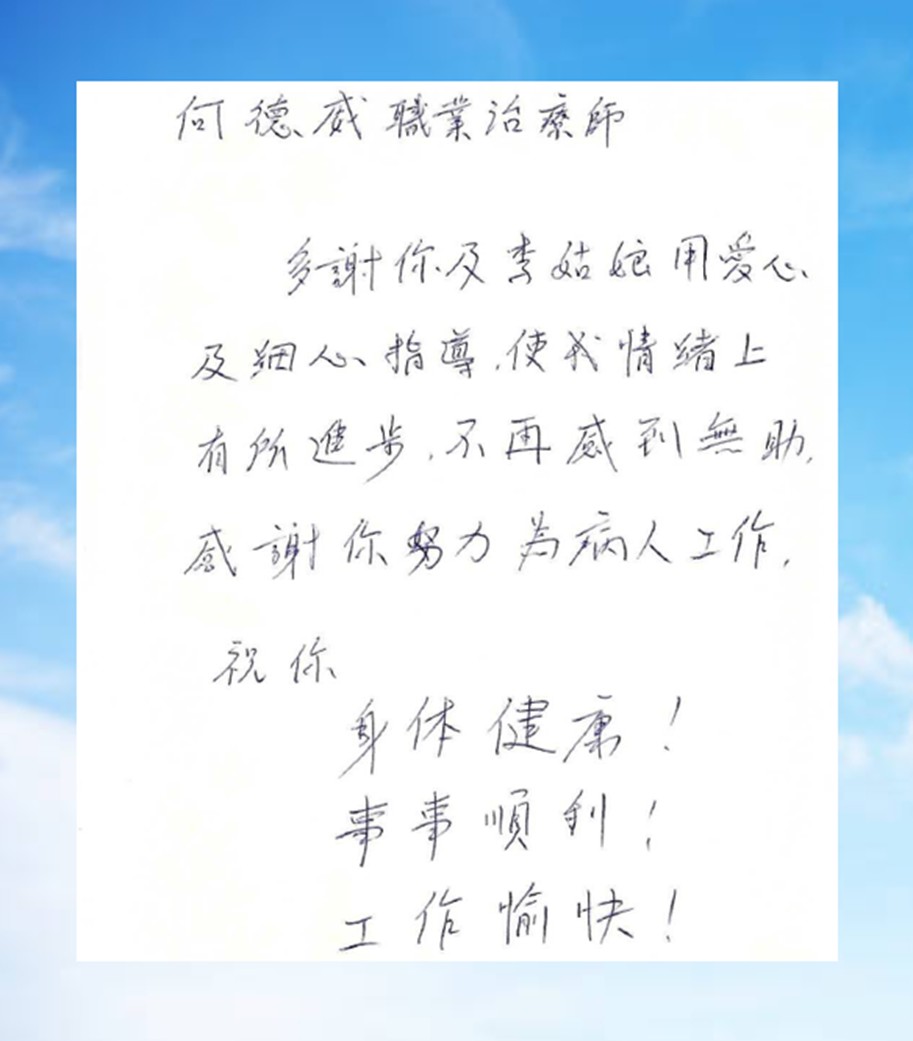 何德威職業治療師
多謝你及李姑娘用愛心
及細心指導,使我情緒上
有所進步,不再感到無助,
感謝你努力為病人工作,
祝你
身体健康!
事事順利!
工作愉快!